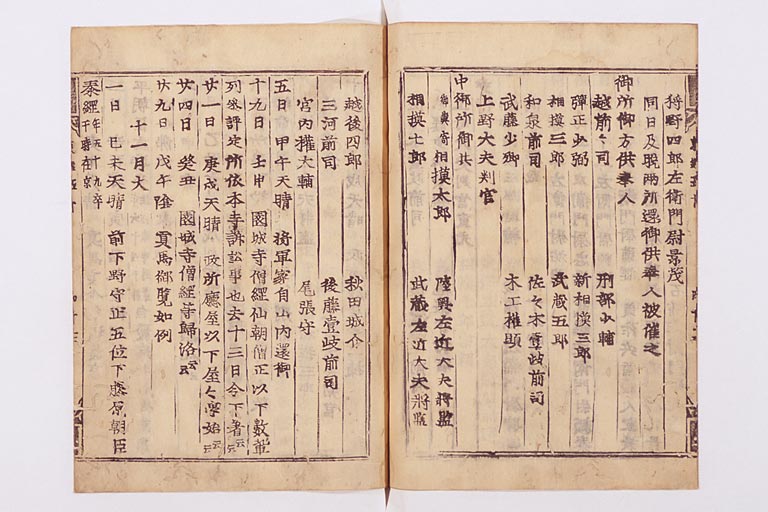 狩野四郎左衛門尉景茂
同日及晩両所還御供奉人被催之
御所御方供奉人
越前々司 刑部少輔
弾正少弼 新相摸三郎
相摸三郎 武蔵五郎
和泉前司 佐々木壹岐前司
武藤少卿 木工権頭
上野大夫判官
中御所御共
相摸太郎 陸奥左近大夫将監
相摸七郎 武蔵左近大夫将監
越後四郎 秋田城介
三河前司 後藤壹岐前司
宮内権大輔 尾張守
五日 甲午天晴 将軍家自山内還御
十九日 壬申 園城寺僧経仙朝僧正以下数輩
列参評定所依本寺訴訟事也去十三日令下着云云
廿一日 庚戌天晴 政所廳屋以下屋々学始云云
廿四日 癸丑 園城寺僧経等歸洛云云
廿九日 戊午陰 貢馬御覧如例
十一月大
一日 己未天晴 前下野守正五位下藤原朝臣
泰経年五十九卒